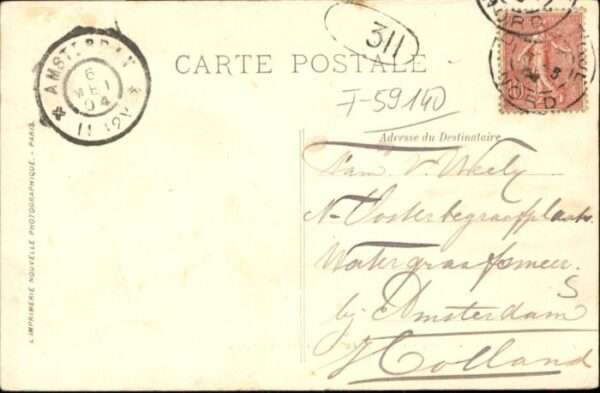 311
NORD
CARTE POSTALE
AMSTERDAM
6
MEI
04
11-12V
NORD
F-59140
Adresse du Destinataire
L'IMPRIMERIE NOUVELLE PHOTOGRAPHIQUE. - PARIS.
V. Weely
N-Oosterbegraafplaats
Watergraafsmeer.
bij Amsterdam
S
Holland